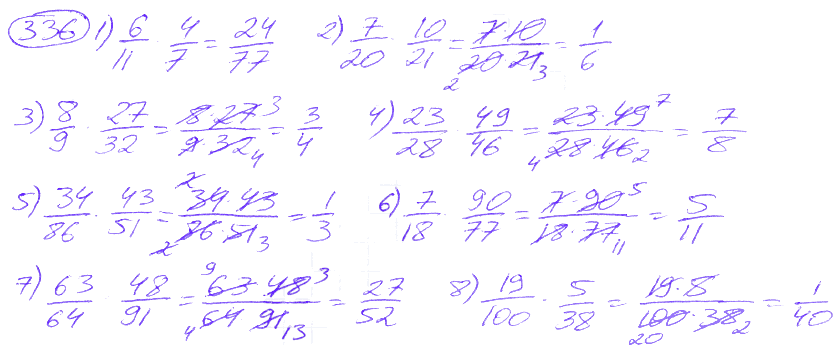 336 1) 6/11 · 4/7 = 24/77 2) 7/20 · 10/21 = 7·10/20·21 2 3 = 1/6
3) 8/9 · 27/32 = 8·27/9·32 3 4 = 3/4 4) 23/28 · 49/46 = 23·49/28·46 7 4 2 = 7/8
5) 34/86 · 43/51 = 34·43/86·51 2 2 3 = 1/3 6) 7/18 · 90/77 = 7·90/18·77 5 11 = 5/11
7) 63/64 · 48/91 = 63·48/64·91 9 3 4 13 = 27/52 8) 19/100 · 5/38 = 19·8/100·38 20 2 = 1/40